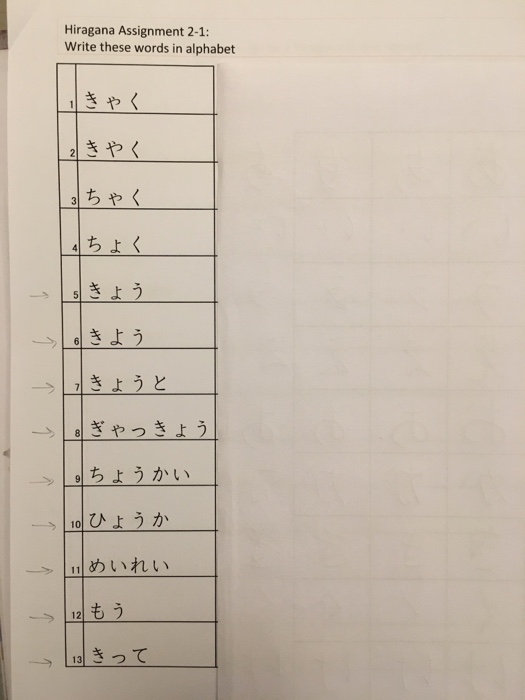 Hiragana Assignment 2-1:
Write these words in alphabet
1 きゃく
2 きやく
3 ちゃく
4 ちょく
→ 5 きょう
→ 6 きよう
→ 7 きょうと
→ 8 ぎゃっきょう
→ 9 ちょうかい
→ 10 ひょうか
→ 11 めいれい
→ 12 もう
→ 13 きって